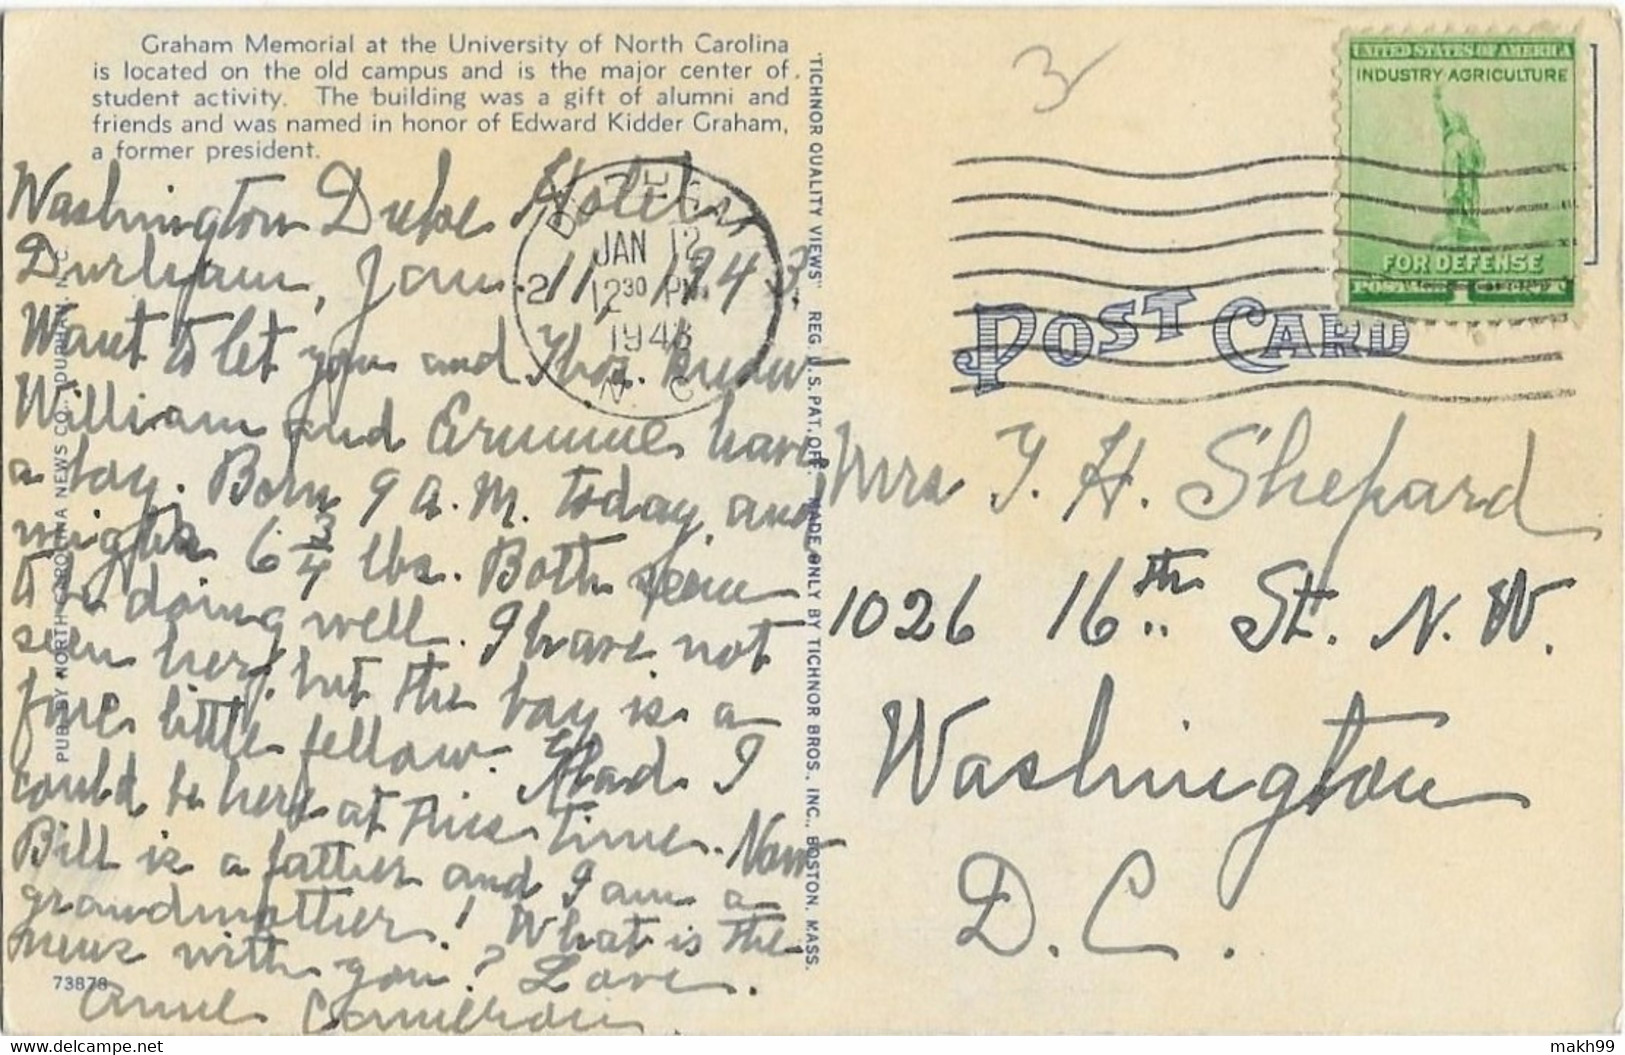 Graham Memorial at the University of North Carolina
is located on the old campus and is the major center of
student activity. The building was a gift of alumni and
friends and was named in honor of Edward Kidder Graham,
a former president.
Washington Duke Hotel
Durham, Jan. 11, 1943.
Want to let you and Thos. know
William and Ermine have
a boy. Born 9 A.M. today, and
weighs 6 3/4 lbs. Both seem
to be doing well. I have not
seen her, but the boy is a
fine little fellow. Glad I
could be here at this time. Now
Bill is a father and I am a
grandmother! What is the
news with you? Love.
Anne Cameron
73878
PUB. BY NORTH CAROLINA NEWS CO., DURHAM, N. C.
"TICHNOR QUALITY VIEWS" REG. U.S. PAT. OFF. MADE ONLY BY TICHNOR BROS., INC., BOSTON, MASS.
JAN 12
12 30 PM
1943
N. C.
2
3
UNITED STATES OF AMERICA
INDUSTRY AGRICULTURE
FOR DEFENSE
1
POST CARD
Mrs T. H. Shepard
1026 16th St. N. W.
Washington
D. C.
delcampe.net
makh99